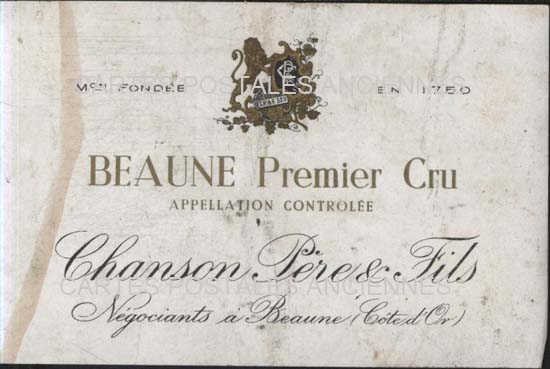 Mon FONDÉE EN 1750
BEAUNE Premier Cru
APPELLATION CONTROLÉE
Chanson Père & Fils
Négociants à Beaune (Côte d'Or)
CARTES POSTALES ANCIENNES
CARTES POSTALES ANCIENNES